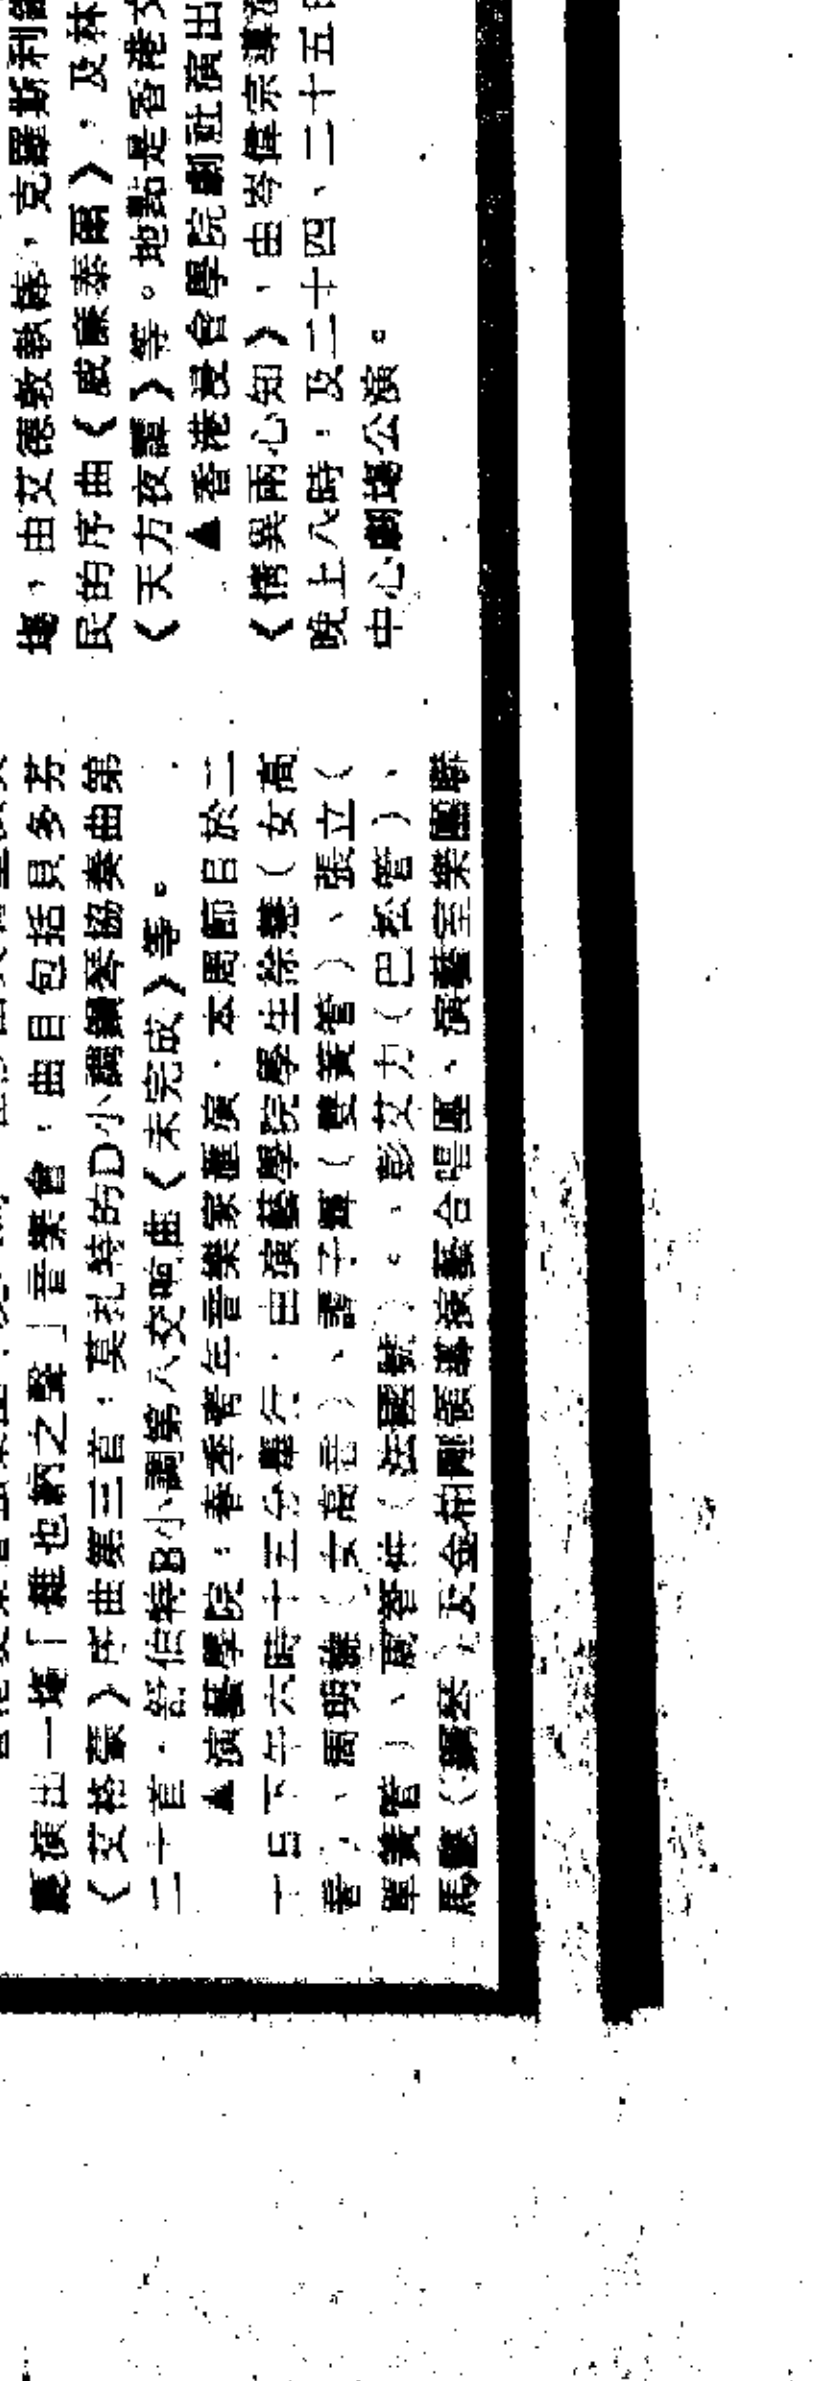 廳演出一場「維也納之聲」音樂會，曲目包括貝多芬
《艾格蒙》序曲第三首，莫扎特的D小調鋼琴協奏曲第
二十首，舒伯特B小調第八交响曲《未完成》等。
▲演藝學院：春季青年音樂家匯演，本周節目於二
十日下午六時十五分舉行，由演藝學院學生徐慧（女高
音）、周明（女高音）、子輝（雙簧管）、張立（
單簧管）、智（法國號）。，彭艾力（巴松管）、
馬（鋼琴）及金柏剛領導演藝合唱團、演藝室樂團聯
場，由艾德敦執棒，克羅斯利
民的序曲《威廉泰爾》，及林
《天方夜譚》等。地點是香港文
▲香港浸會學院劇社演出
《情異兩心知》，由岑偉宗導
晚上八時，及二十四、二十五日
中心劇場公演。